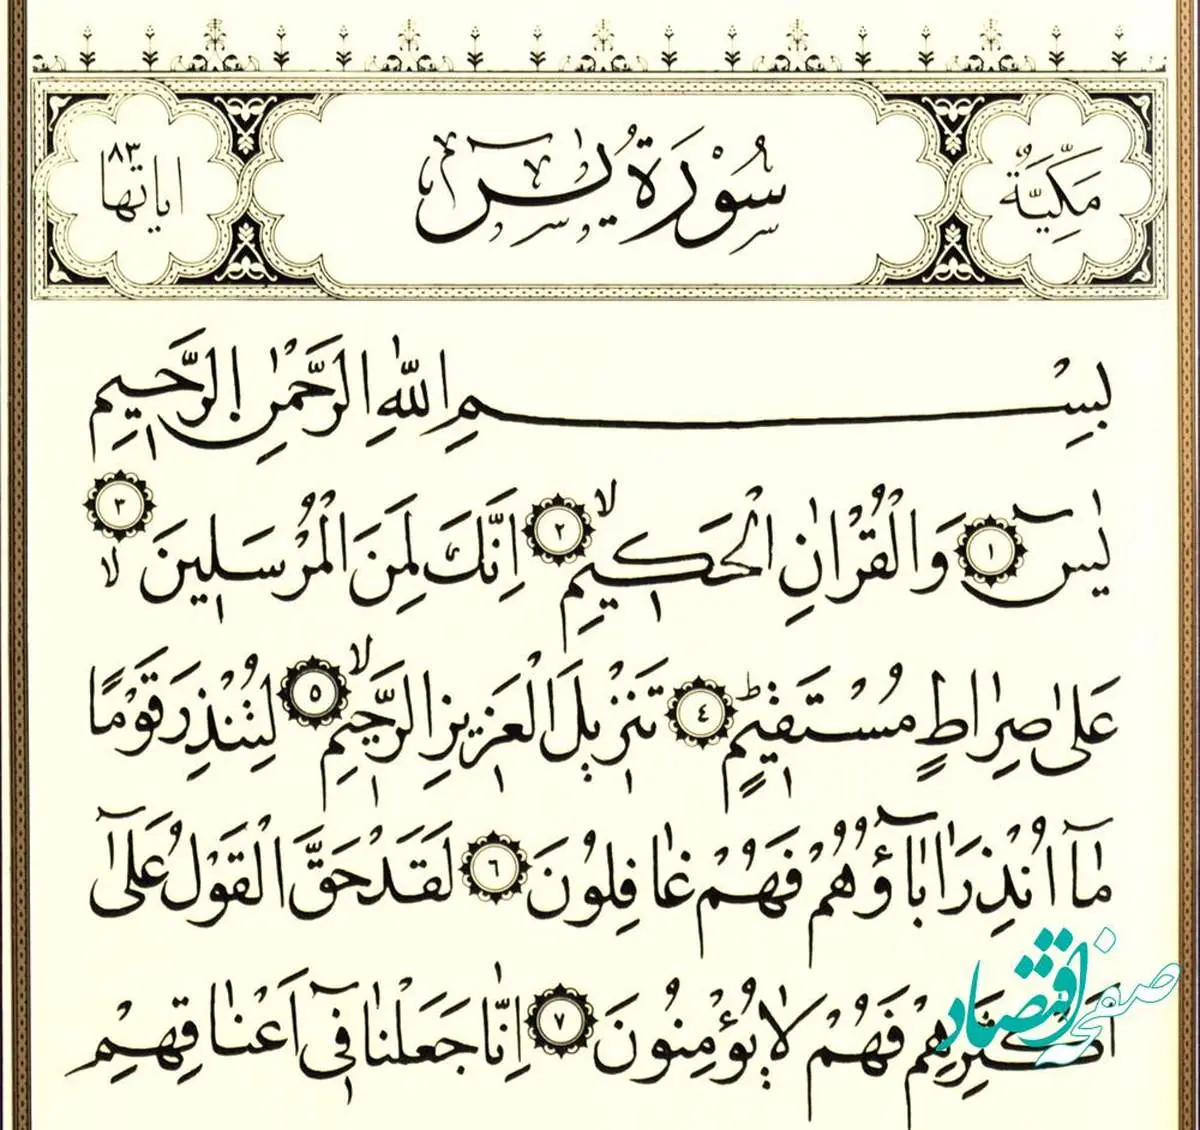 مَكِّيَّةٌ
سُوْرَةُ يٰسٓ
اياتها ٨٣
بِسْمِ اللّٰهِ الرَّحْمٰنِ الرَّحيمِ
يٰسٓ ١ وَالْقُرْاٰنِ الْحَكيمِ لا ٢ اِنَّكَ لَمِنَ الْمُرْسَلينَ لا ٣
عَلٰى صِراطٍ مُسْتَقيمٍ ط ٤ تَنْزيلَ الْعَزيزِ الرَّحيمِ لا ٥ لِتُنْذِرَ قَوْمًا
مٰٓا اُنْذِرَ اٰبٰٓاؤُهُمْ فَهُمْ غٰافِلُونَ ٦ لَقَدْ حَقَّ الْقَوْلُ عَلٰٓى
اَكْثَرِهِمْ فَهُمْ لٰا يُؤْمِنُونَ ٧ اِنّٰا جَعَلْنٰا فٓى اَعْنٰاقِهِمْ
صفحه اقتصاد